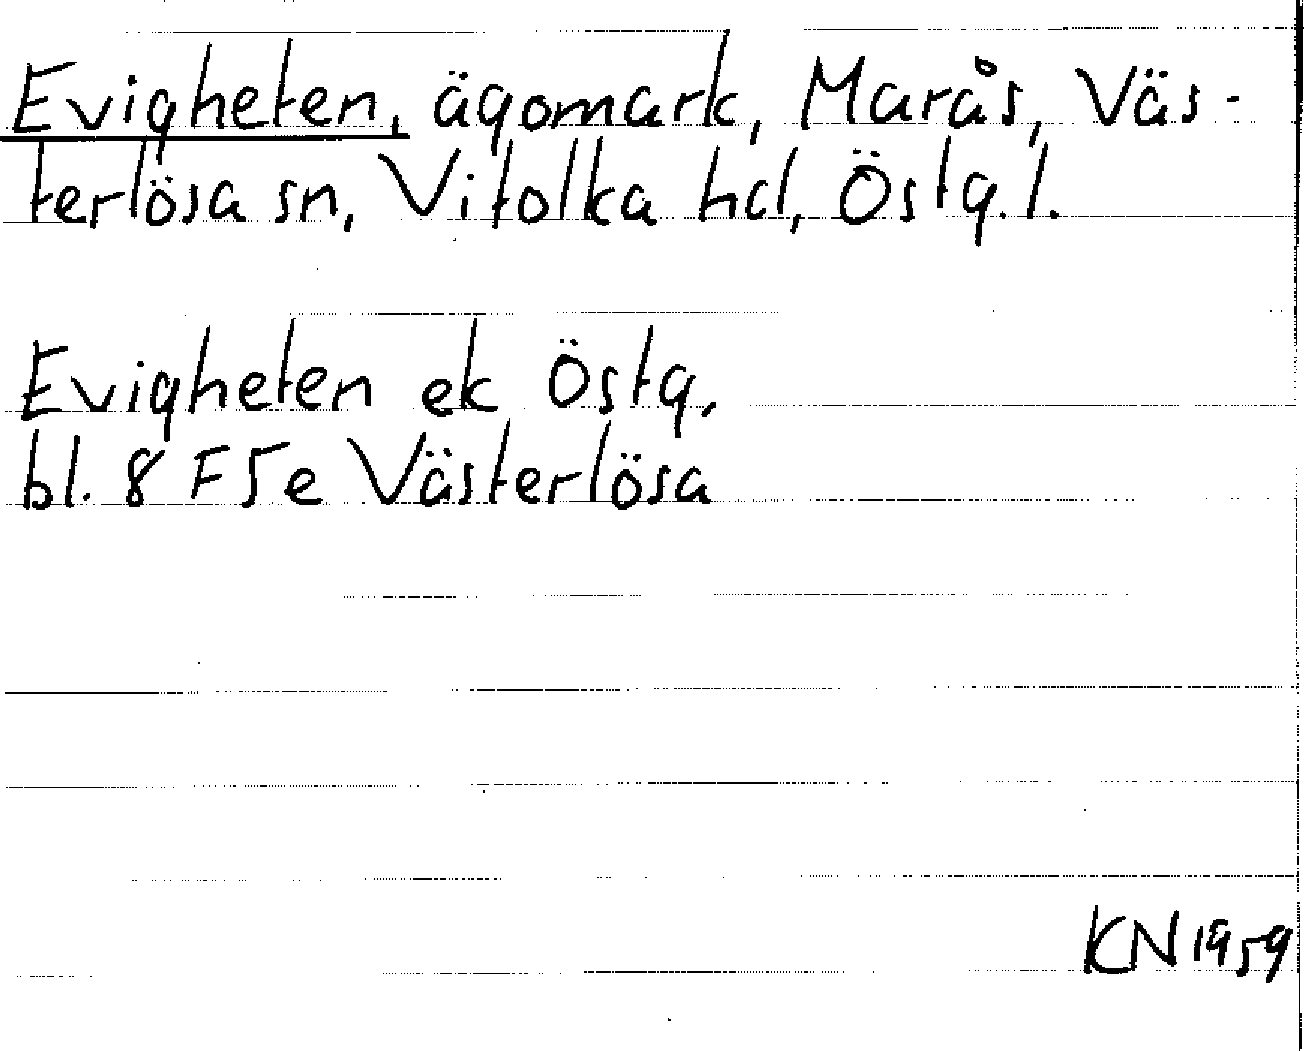 Evigheten, ägomark, Marås, Väs-
terlösa sn, Vifolka hd, Östg.l.
Evigheten ek Östg.
bl. 8 F 5 e Västerlösa
KN 1959